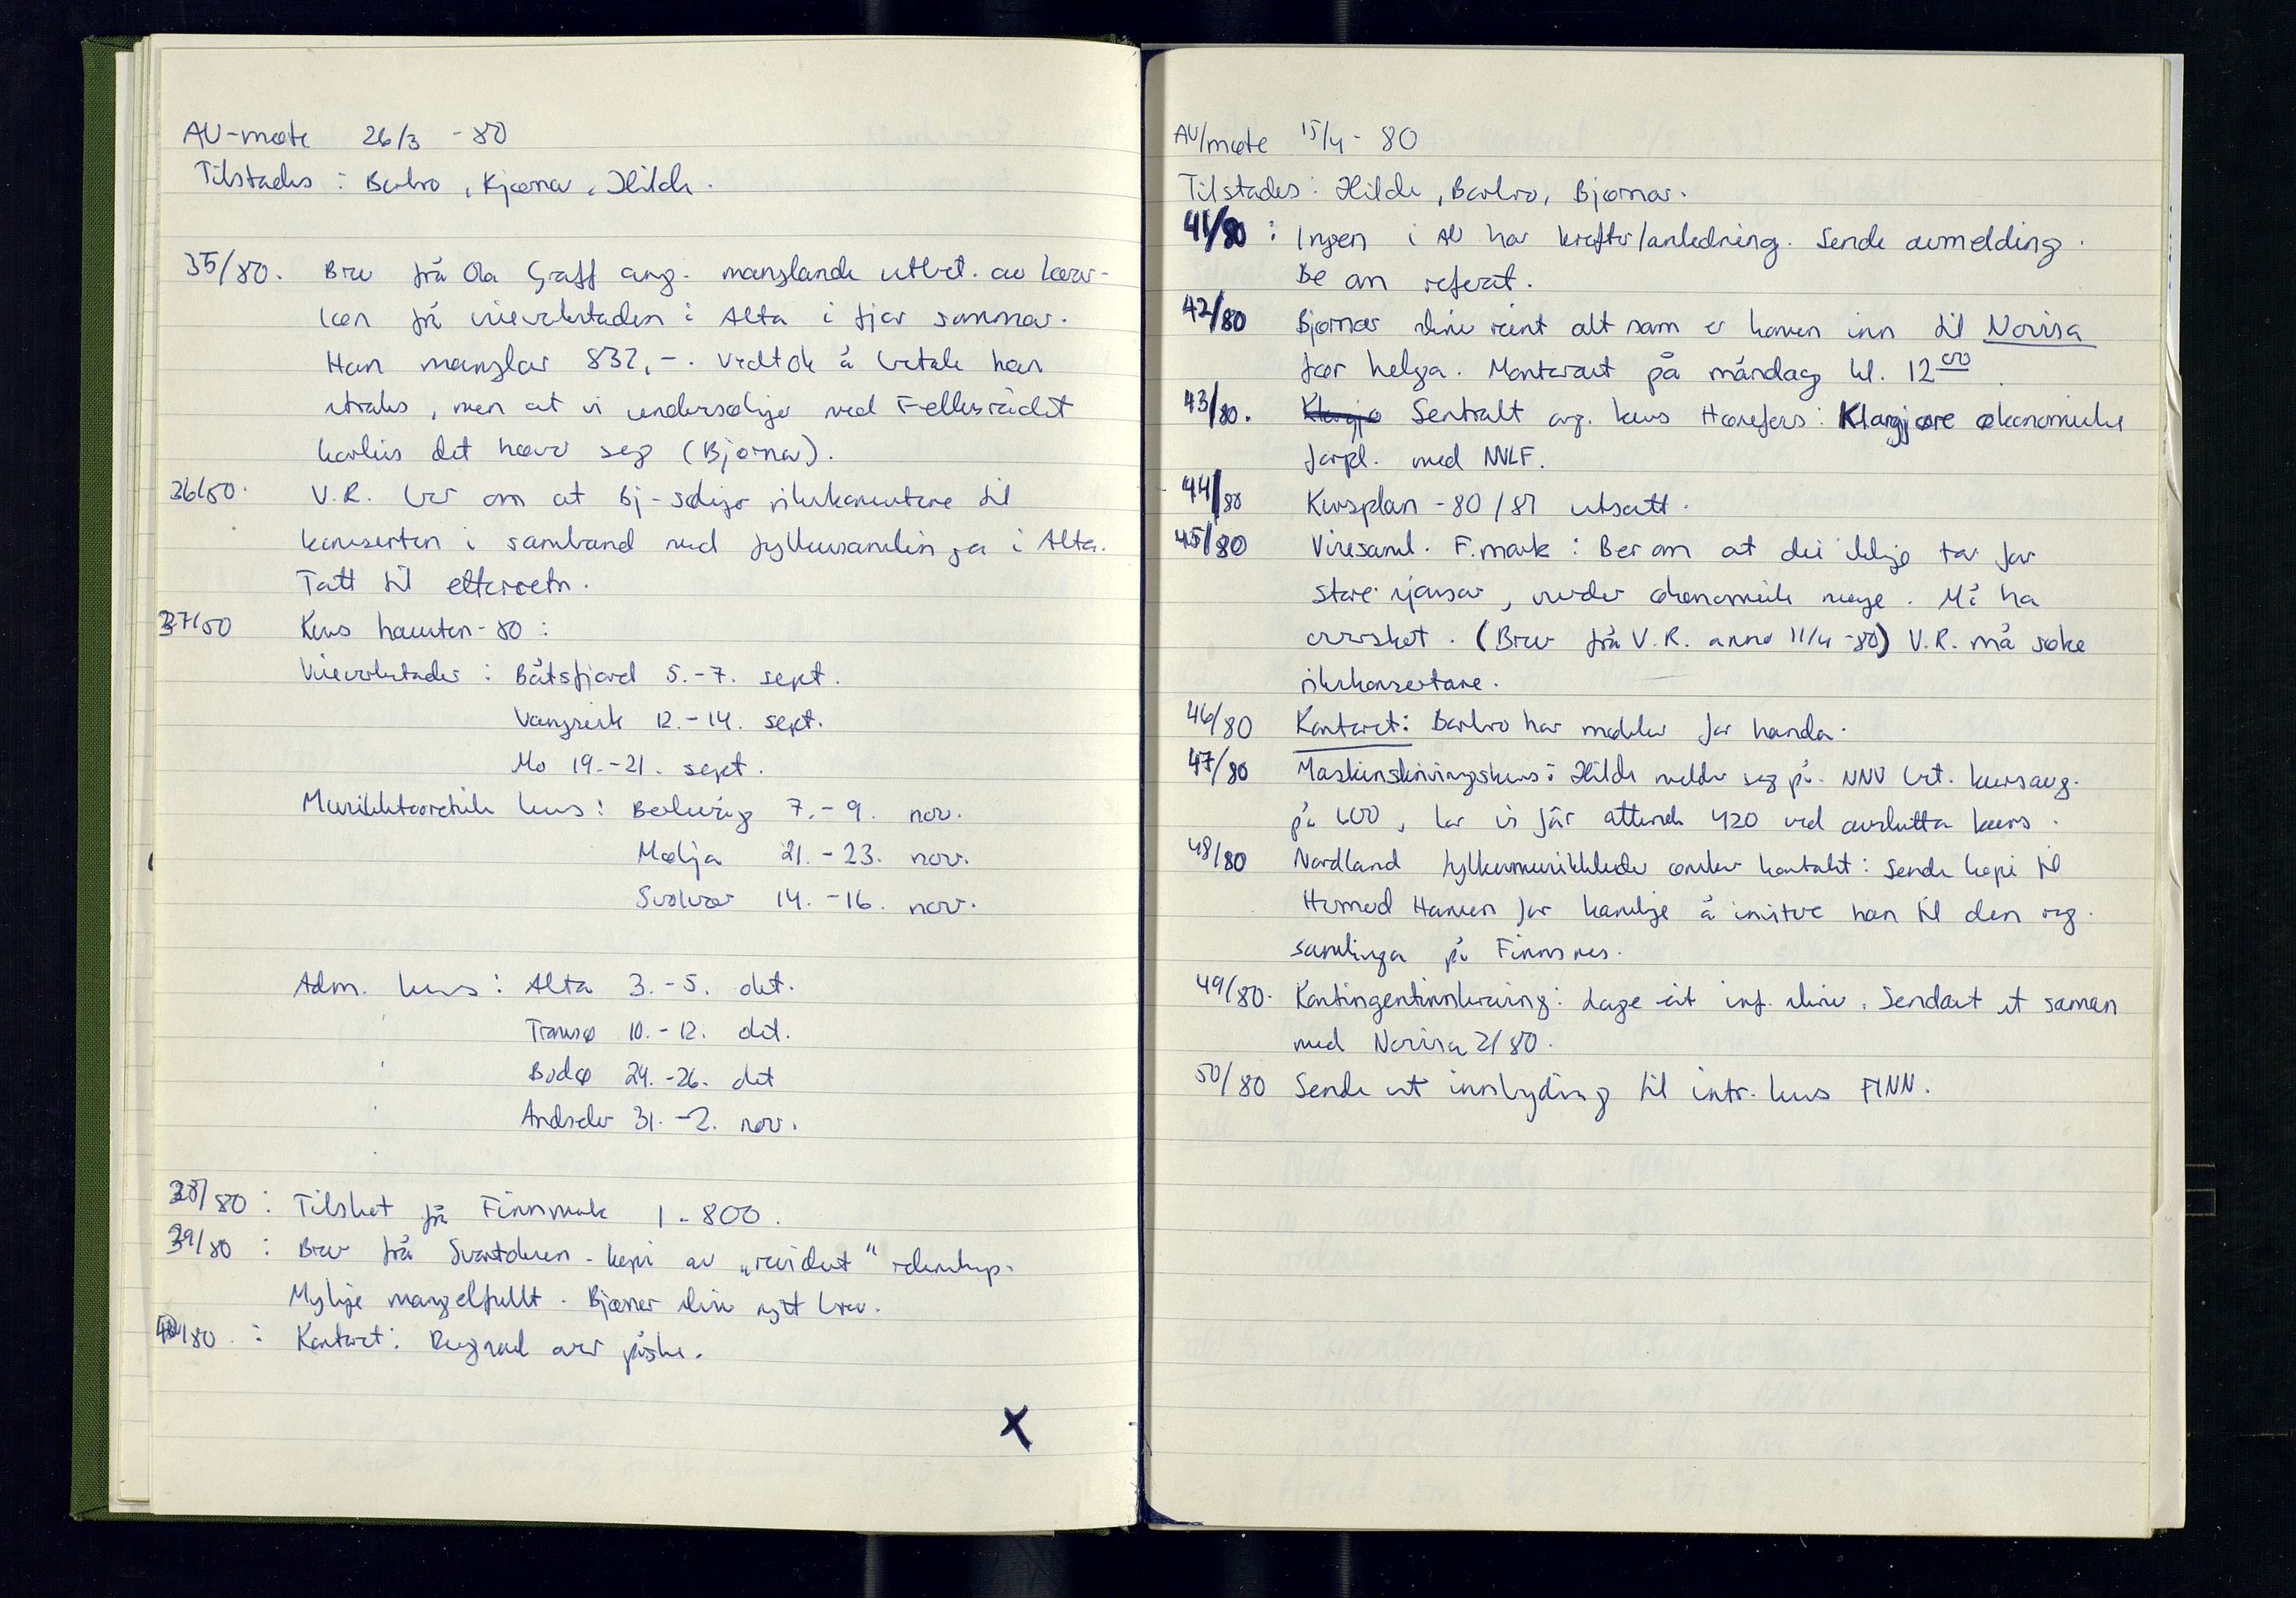 AU-møte 26/3 -80
Tilstades : Barbro, Bjørnar, Hilde.
35/80. Brev frå Ola Graff ang. manglande utbet. av honor-
frå viseverkstaden i Alta i fjor sommar.
Han manglar 832,-. Vedtok å betale han
straks, men at vi undersøkjer med Fellesrådet
korleis det heve seg (Bjørnar).
36/80. V.R. ber om at Bj. søkjer rikskonsertane til
konserten i samband med fylkessamlinga i Alta.
Tatt til etterretn.
37/80 Kurs hausten-80 :
Viseverkstader : Båtsfjord 5.-7. sept.
Vangsvik 12.-14. sept.
Mo 19.-21. sept.
Musikkteoretisk kurs : Berlevåg 7.-9. nov.
21.-23. nov.
Svolvær 14.-16. nov.
Adm. kurs : Alta 3.-5. okt.
Tromsø 10.-12. okt.
Bodø 24.-26. okt
Andselv 31.-2. nov.
38/80 : Tilskot frå Finnmark 1.800.
39/80 : Brev frå Svartoksen - kopi av „revidert" rekneskap.
Mykje mangelfullt. Bjørnar skriv nytt brev.
40/80 : Kontoret : Dugnad over påske.
X
AU/møte 15/4- 80
Tilstades : Hilde, Barbro, Bjørnar.
41/80 : Ingen i AU har krefter/anledning. Sende avmelding.
Be om referat.
42/80 Bjørnar skriv reint alt som er komen inn til Norvisa
før helga. Monterast på måndag kl. 12 00.
43/80. Klargjø Sentralt ang. kurs Harefoss : Klargjøre økonomiske
forpl. med NVLF.
44/80 Kursplan -80/81 utsatt.
45/80 Visesaml. F.mark : Ber om at dei ikkje tar for
store sjansar, vurder økonomisk nøye. Må ha
overskot. (Brev frå V.R. anno 11/4-80) V.R. må søke
rikskonsertane.
46/80 Kontoret : Barbro har møbler for handa.
47/80 Maskinskrivingskurs : Hilde melder seg på. NNV bet. kursavg.
på 600, her vi får attende 420 ved avslutta kurs.
48/80 Nordland fylkesmusikkleder ønsker kontakt : Sende kopi til
Hansen for kanskje å invitere han til den reg.
samlinga på Finnsnes.
49/80. Kontingentinnkreving : Lage eit inf. skriv. Sendast ut saman
med Norvisa 2/80.
50/80 Sende ut innbyding til intr. kurs FINN.